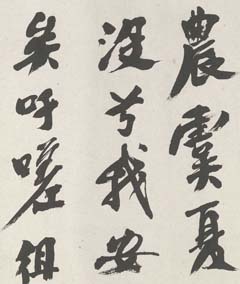 農虞夏
没兮我安
矣吁嗟徂